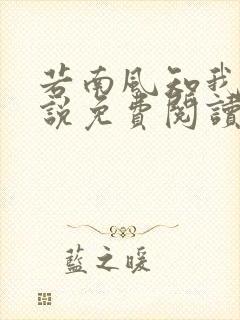 若南風知我
說免費閱讀
藍之暖